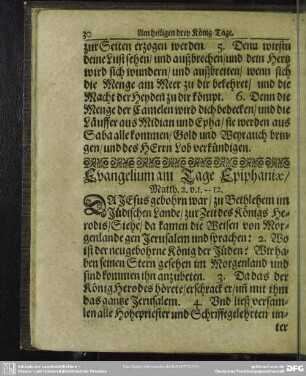 30 Am heiligen drey König Tage.
zur Seiten erzogen werden. 5. Denn wirstu
deine Lust sehen/ und außbrechen/ und dein Hertz
wird sich wundern/ und außbreiten/ wenn sich
die Menge am Meer zu dir bekehret/ und die
Macht der Heyden zu dir kömpt. 6. Denn die
Menge der Camelen wird dich bedecken/ und die
Läuffer aus Midian und Epha/ sie werden aus
Saba alle kommen/ Gold und Weyrauch brin-
gen/ und des HErrn Lob verkündigen.
Evangelium am Tage Epiphaniæ/
Matth. 2. v. 1. -- 12.
DA JEsus gebohrn war/ zu Bethlehem im
Jüdischen Lande/ zur Zeit des Königs He-
rodis/ Siehe/ da kamen die Weisen von Mor-
genlande gen Jerusalem und sprachen: 2. Wo
ist der neugebohrne König der Jüden? Wir ha-
ben seinen Stern gesehen im Morgenland und
sind kommen ihn anzubeten. 3. Da das der
König Herodes hörete/ erschrack er/ uñ mit ihm
das gantze Jerusalem. 4. Und ließ versam-
len alle Hohepriester und Schrifftgelehrten un-
ter